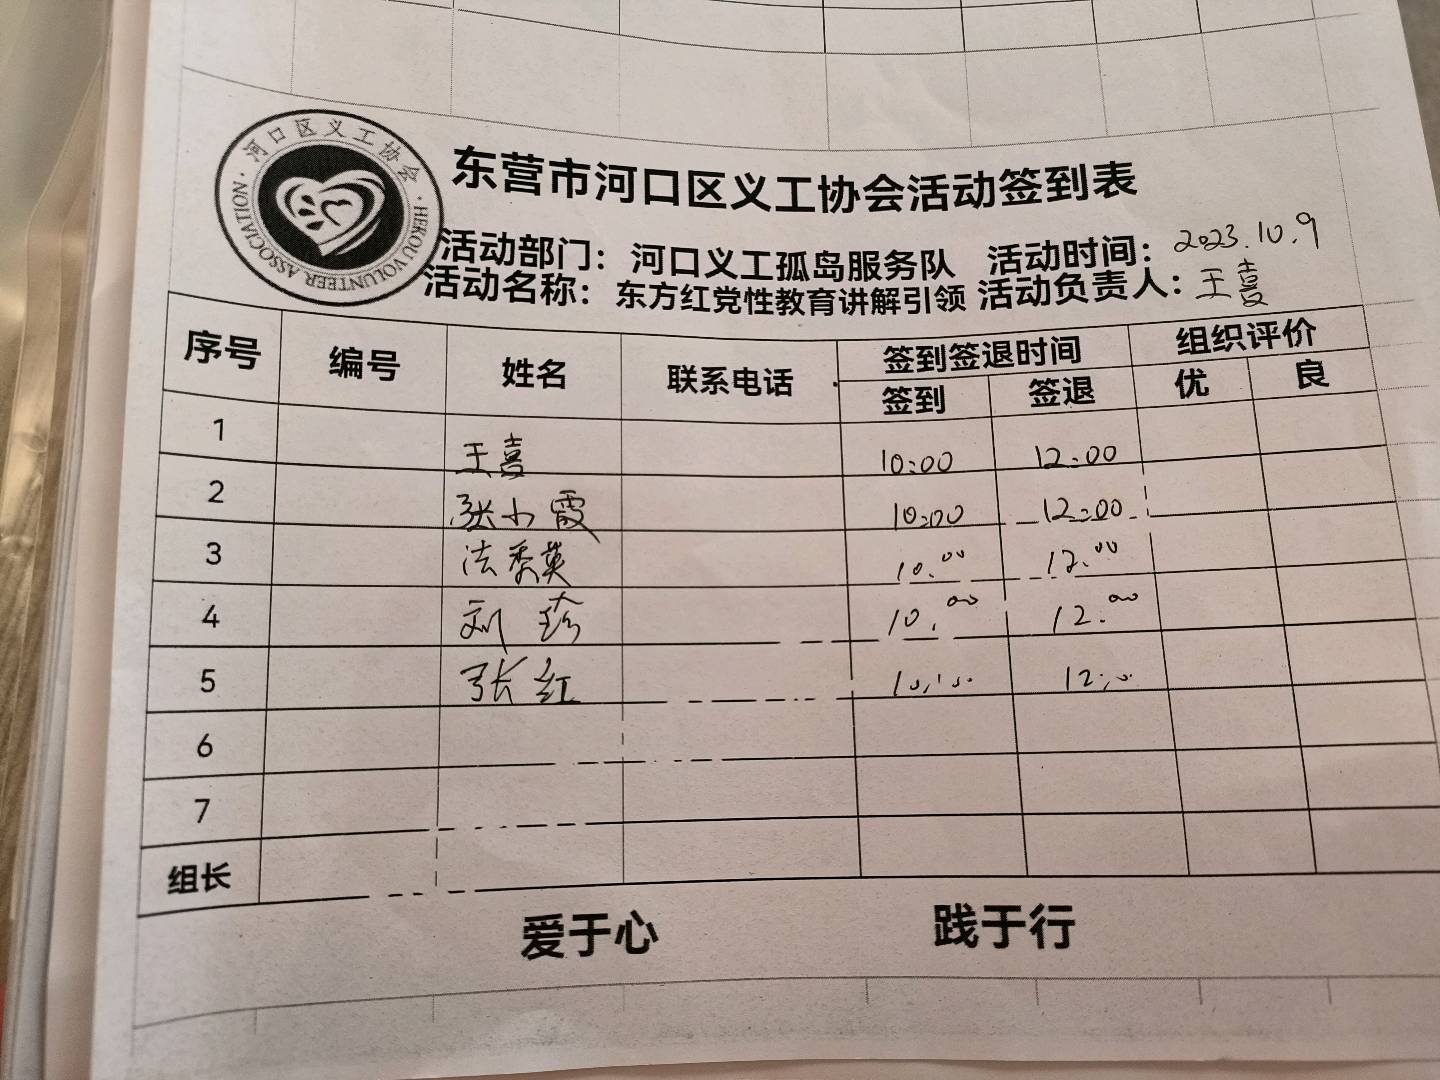 河口区义工协会
HEKOU VOLUNTEER ASSOCIATION
东营市河口区义工协会活动签到表
活动部门：河口义工孤岛服务队 活动时间：2023.10.9
活动名称：东方红党性教育讲解引领 活动负责人：王喜
序号 编号 姓名 联系电话 签到签退时间 组织评价
签到 签退 优 良
1 王喜 10:00 12:00
2 张小霞 10:00 12:00
3 法秀英 10.00 12.00
4 刘珍 10.00 12.00
5 张红 10:00 12:00
6
7
组长
爱于心 践于行